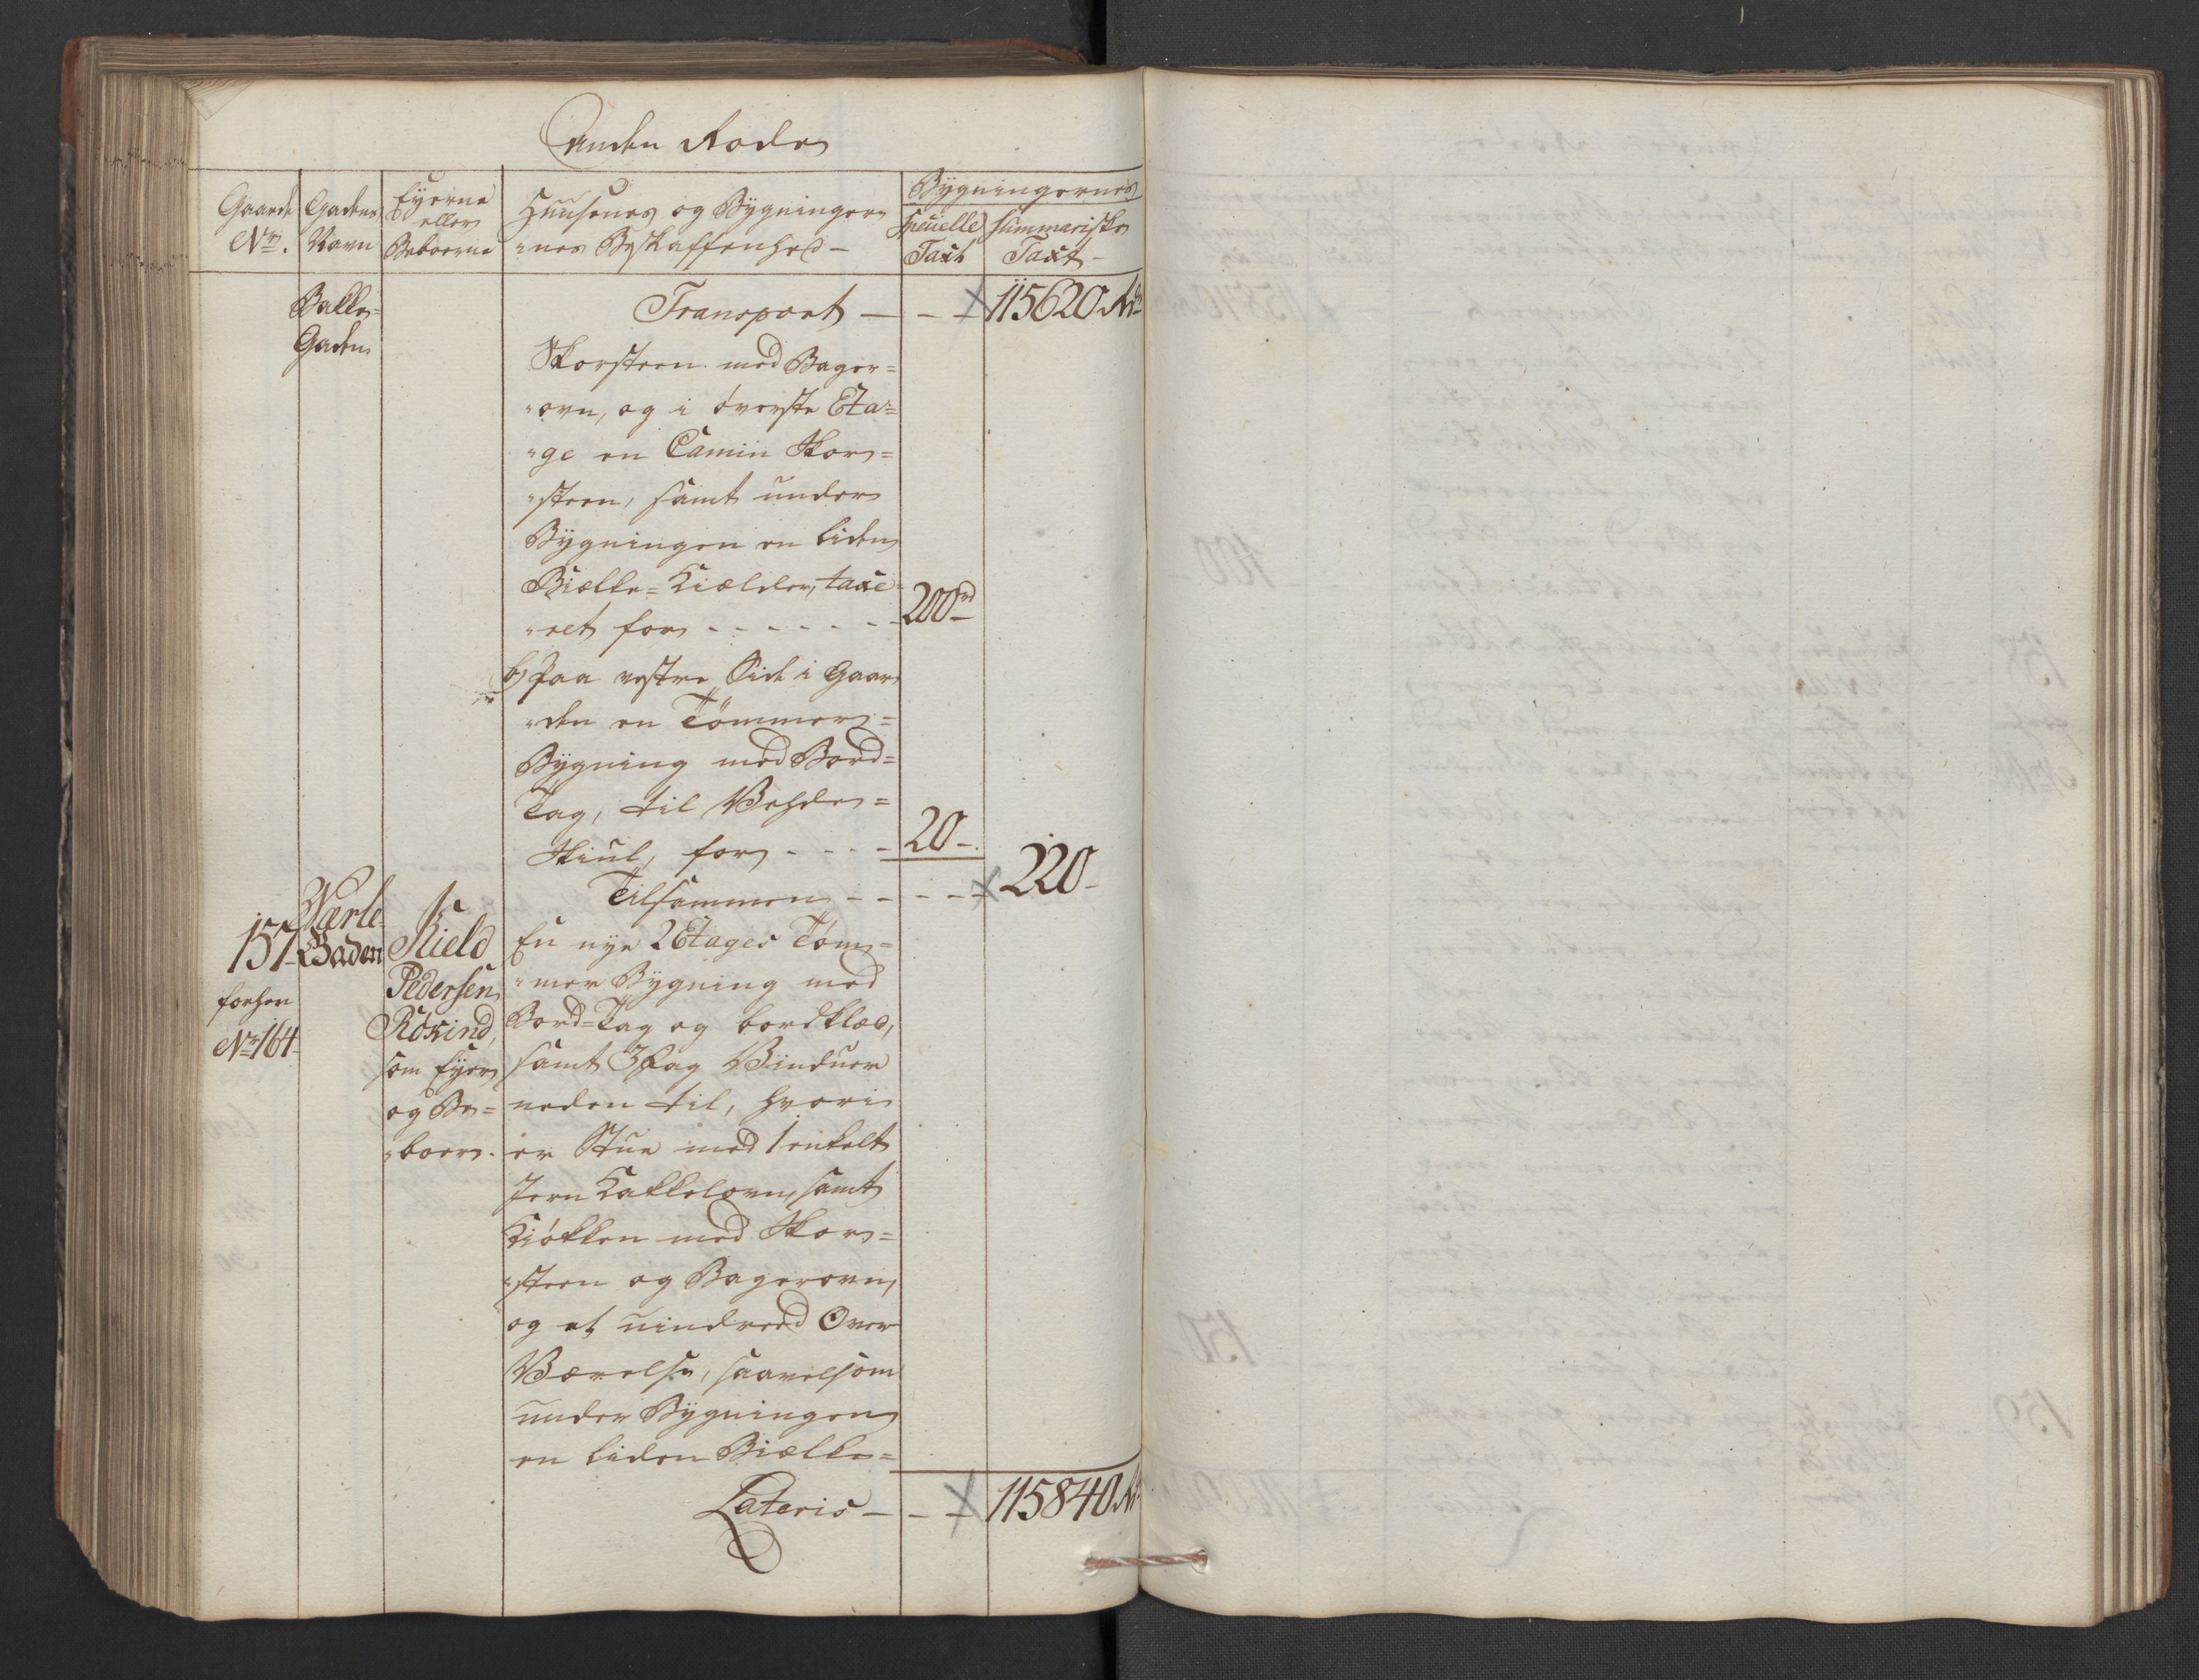 Anden Rode
Gaardens Nr. | Gadens Navn | Eyerne eller Beboerne | Huusenes og Bygninger-
"nes Beskaffenhed – | Bygningernes
Specielle Taxt | Summariske Taxt –
Bakke=
Gaden
Transport — – – 115620 Rd
Skorsteen med Bager=
"ovn, og i øverste Eta=
"ge en Camin Skor=
"steen, samt under
Bygningen en liden
Bielke=Kielder, taxe=
"ret for - - - - - - 200 rd
b) Paa vestre Side i Gaar
"den en Tømmer=
Bygning med Bord=
Tag, til Vehde=
Skiul, for - - - - 20 –
Tilsammen - - - - - 220 –
157
forhen
No 164
Værle-
Baden
Kield
Pedersen
som Eyer
og Be=
"boer.
En nye 2 Etages Tøm=
"mer Bygning med
Bord=Tag og bordklæd,
samt 3 Fag Vinduer
neden til, hvori
er Stue med 1 enkelt
Jern Kakkelovn, samt
Kiøkken med Skor=
"steen og Bagerovn,
og et uindreed Over
Værelse, saavelsom
under Bygningen
en liden Bielke=
Lateris — – – 115840 Rd